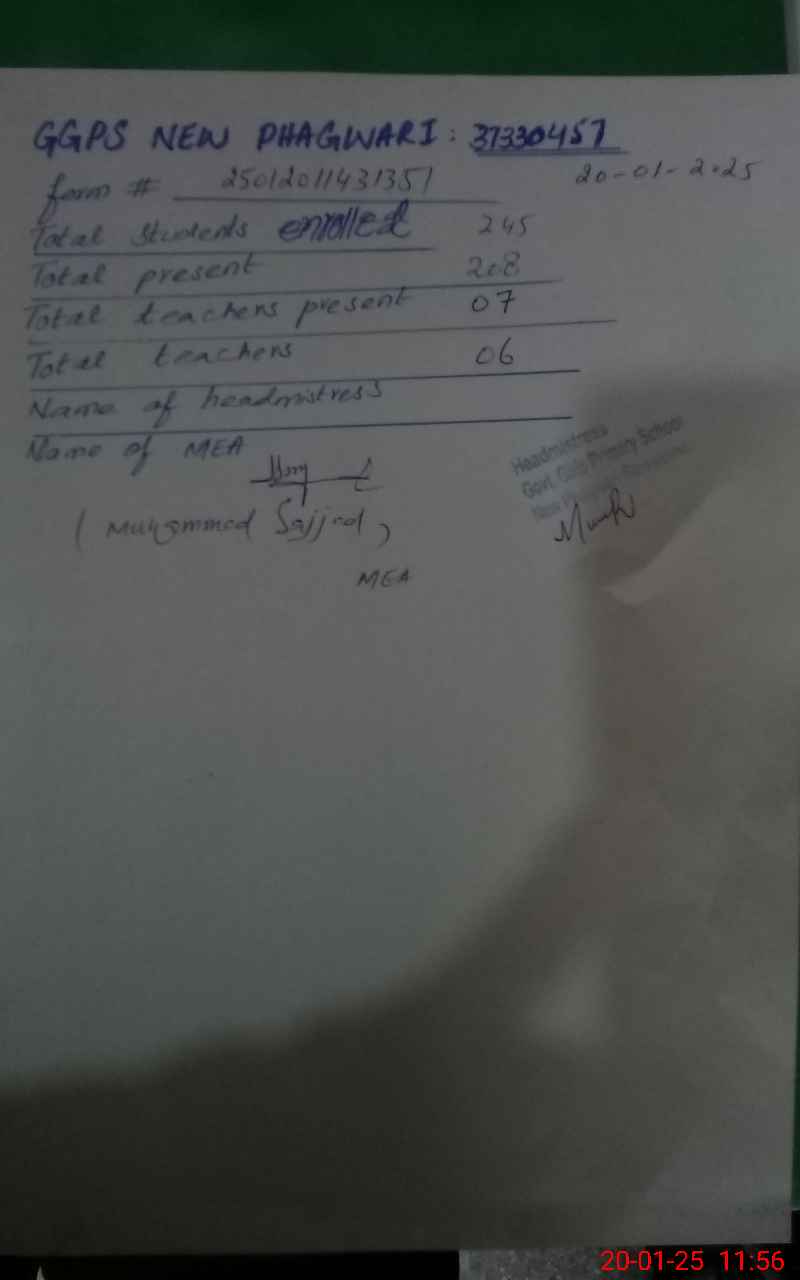 GGPS NEW PHAGWARI: 37330457
form # 25012011431351 20-01-2025
Total Students enrolled 245
Total present 208
Total teachers present 07
Total teachers 06
Name of headmistress
Name of MEA
(Muhammad Sajjad)
MEA
Headmistress
Govt. Girls Primary School
New
20-01-25 11:56